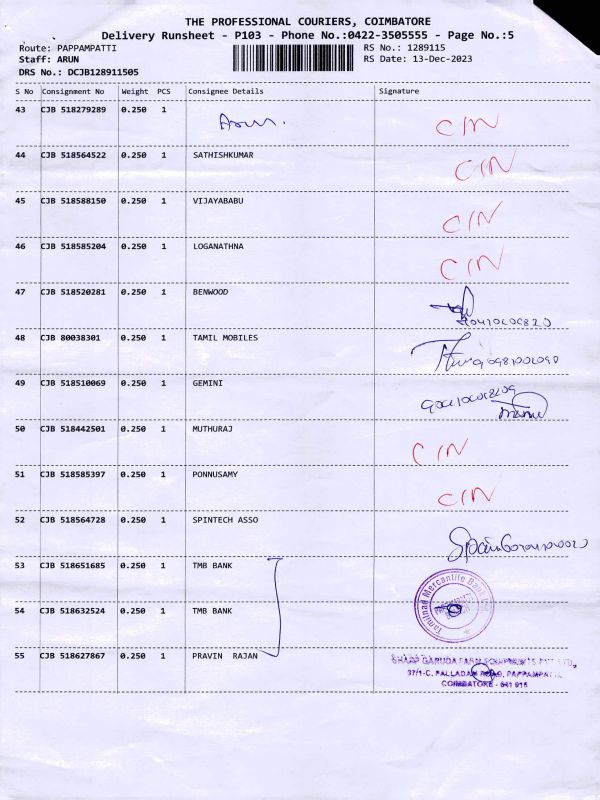 THE PROFESSIONAL COURIERS, COIMBATORE
Delivery Runsheet - P103 - Phone No.:0422-3505555 - Page No.:5
Route: PAPPAMPATTI RS No.: 1289115
Staff: ARUN RS Date: 13-Dec-2023
DRS No.: DCJB128911505
S No Consignment No Weight PCS Consignee Details Signature
43 CJB 518279289 0.250 1 Arun. CIN
44 CJB 518564522 0.250 1 SATHISHKUMAR CIN
45 CJB 518588150 0.250 1 VIJAYABABU CIN
46 CJB 518585204 0.250 1 LOGANATHNA CIN
47 CJB 518520281 0.250 1 BENWOOD
48 CJB 80038301 0.250 1 TAMIL MOBILES
49 CJB 518510069 0.250 1 GEMINI
50 CJB 518442501 0.250 1 MUTHURAJ CIN
51 CJB 518585397 0.250 1 PONNUSAMY CIN
52 CJB 518564728 0.250 1 SPINTECH ASSO
53 CJB 518651685 0.250 1 TMB BANK
Tamilnad Mercantile Bank Ltd
54 CJB 518632524 0.250 1 TMB BANK
55 CJB 518627867 0.250 1 PRAVIN RAJAN
SHARP GARUDA FARM EQUIPMENTS PVT LTD,
37/1-C, PALLADAM ROAD, PAPPAMPATTI
COIMBATORE - 641 016